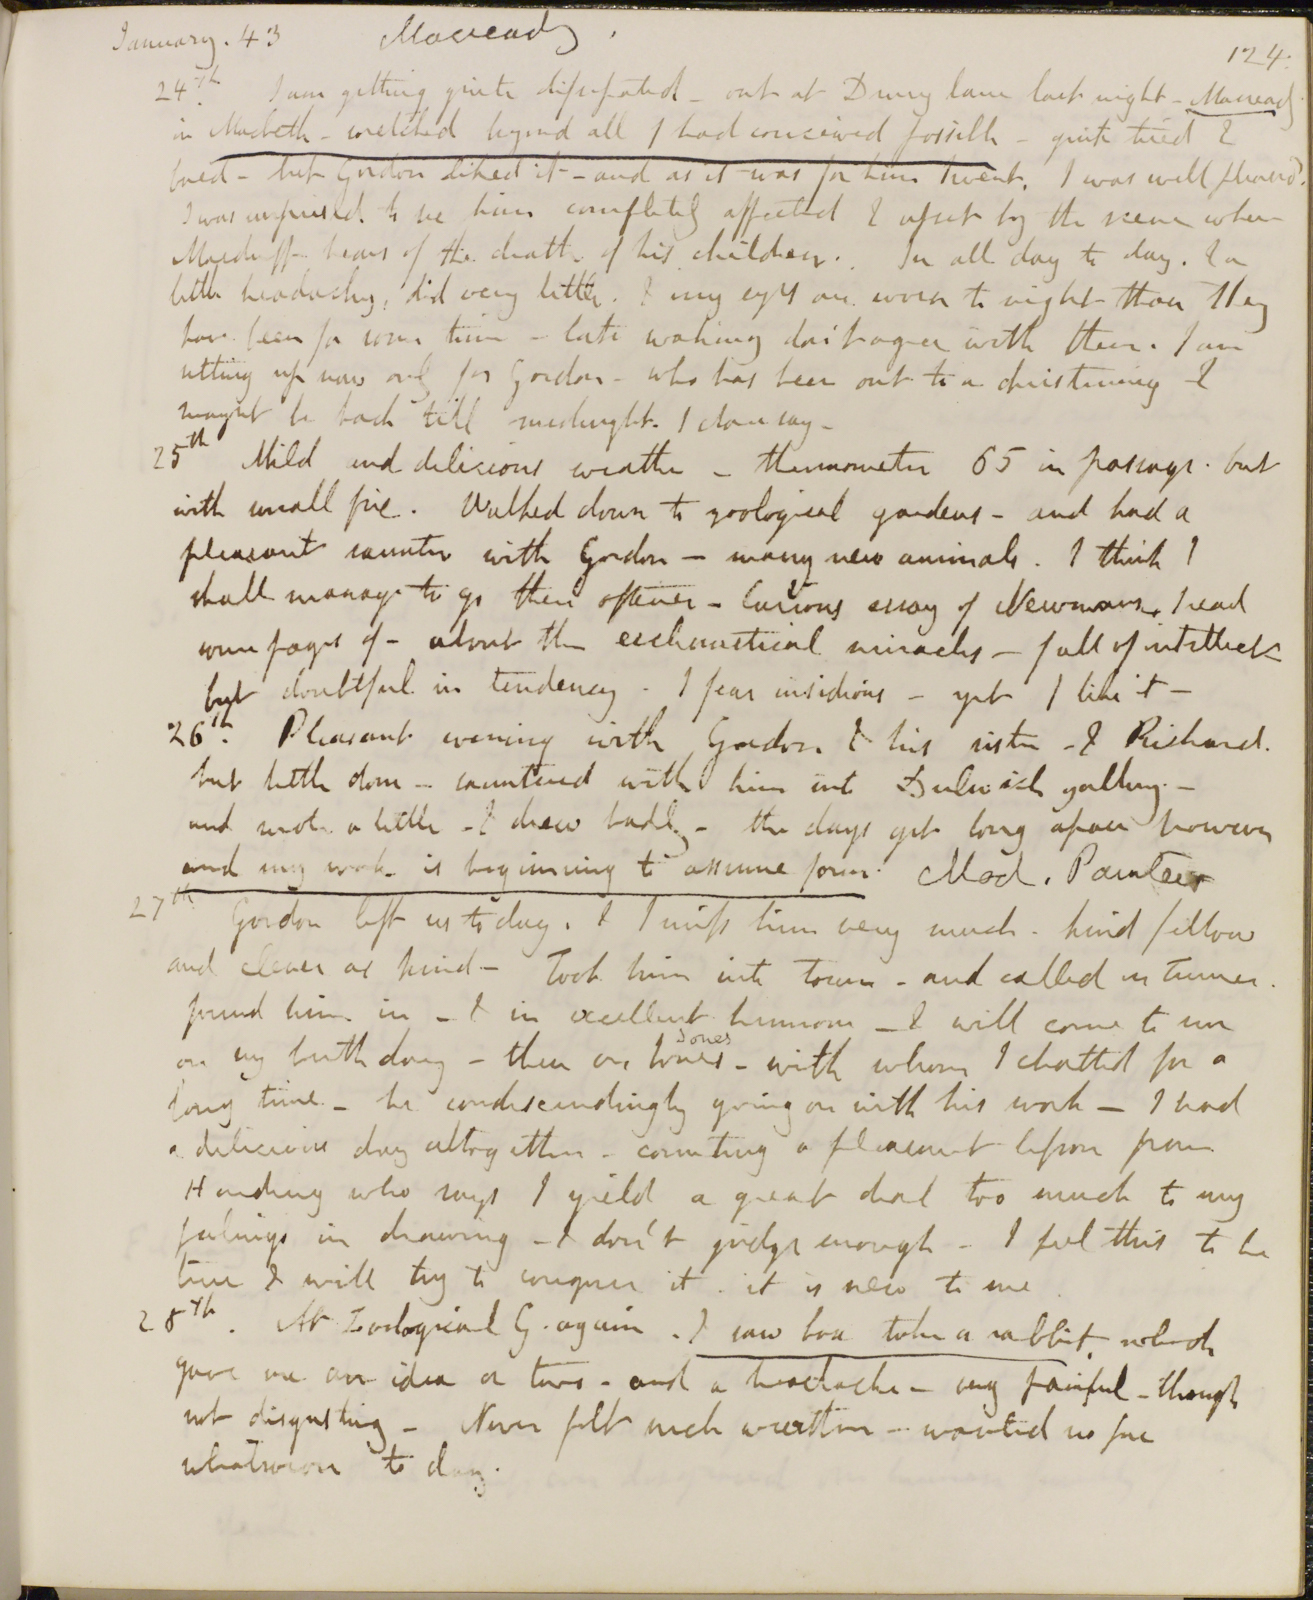 January. 43 Macready.
124.
24th. I am getting quite dissipated - out at Drury lane last night - Macready
in Macbeth - wretched beyond all I had conceived possible - quite tired &
bored - but Gordon liked it - and as it was for him I went, I was well pleased.
I was surprised to see him completely affected & upset by the scene when
Macduff hears of the death of his children. In all day to day. & a
little headachy, did very little. & my eyes are worse to night than they
have been for some time - late waking don't agree with them. I am
sitting up now only for Gordon - who has been out to a christening &
mayn't be back till midnight. I dare say -
25th Mild and delicious weather - thermometer 65 in passage. but
with small fire. Walked down to zoological gardens - and had a
pleasant saunter with Gordon - many new animals. I think I
shall manage to go there oftener - Curious essay of Newmans, I read
some pages of - about the ecclesiastical miracles - full of intellect
but doubtful in tendency. I fear insidious - yet I like it -
26th. Pleasant evening with Gordon & his sister - & Richard.
but little done - sauntered with him into Dulwich gallery -
and wrote a little - & drew badly - the days get long apace however
and my work is beginning to assume form. Mod. Painters
27th Gordon left us to day. & I miss him very much - kind fellow
and clever as kind - Took him into town - and called on Turner.
found him in - & in excellent humour - & will come to me
on my birth day - then on Jones - with whom I chatted for a
Jones
long time - he condescendingly going on with his work - I had
a delicious day altogether - counting a pleasant lesson from
Harding who says I yield a great deal too much to my
feelings in drawing - & don't judge enough - I feel this to be
true & will try to conquer it. it is new to me.
28th. At Zoological G. again. & saw boa take a rabbit, which
gave me an idea or two - and a headache - very painful - though
not disgusting - Never felt such weather - wanted no fire
whatsoever to day.